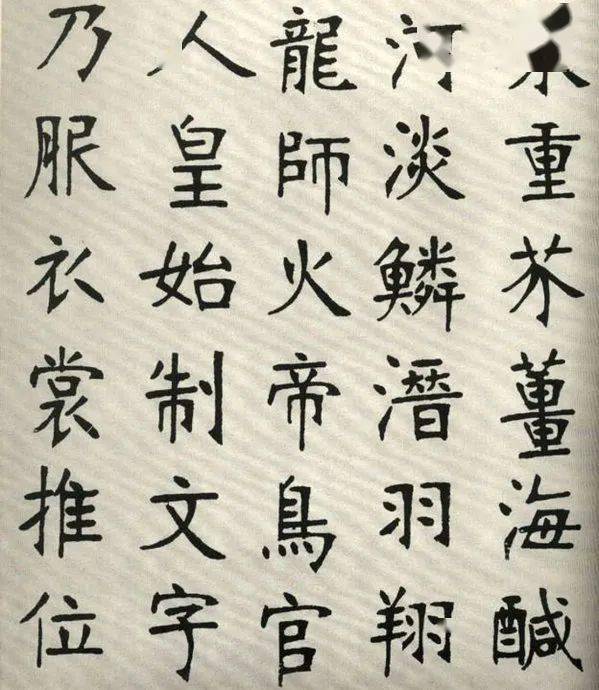 重芥薑海醎
河淡鱗潛羽翔
龍師火帝鳥官
人皇始制文字
乃服衣裳推位